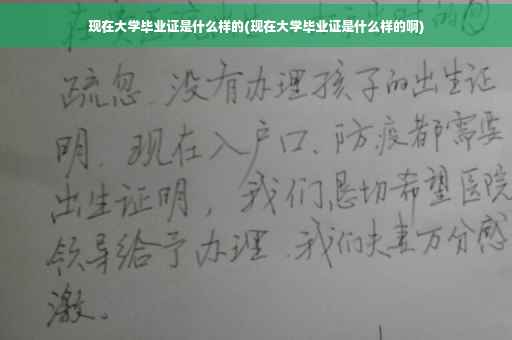 现在大学毕业证是什么样的(现在大学毕业证是什么样的啊)
疏忽.没有办理孩子的出生证
明.现在入户口、防疫都需要
出生证明，我们恳切希望医院
领导给予办理.我们夫妻万分感
激。